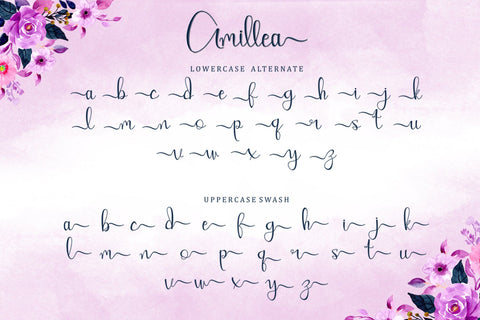 Amillea
LOWERCASE ALTERNATE
a b c d e f g h i j k
l m n o p q r s t u
v w x y z
UPPERCASE SWASH
a b c d e f g h i j k
l m n o p q r s t u
v w x y z